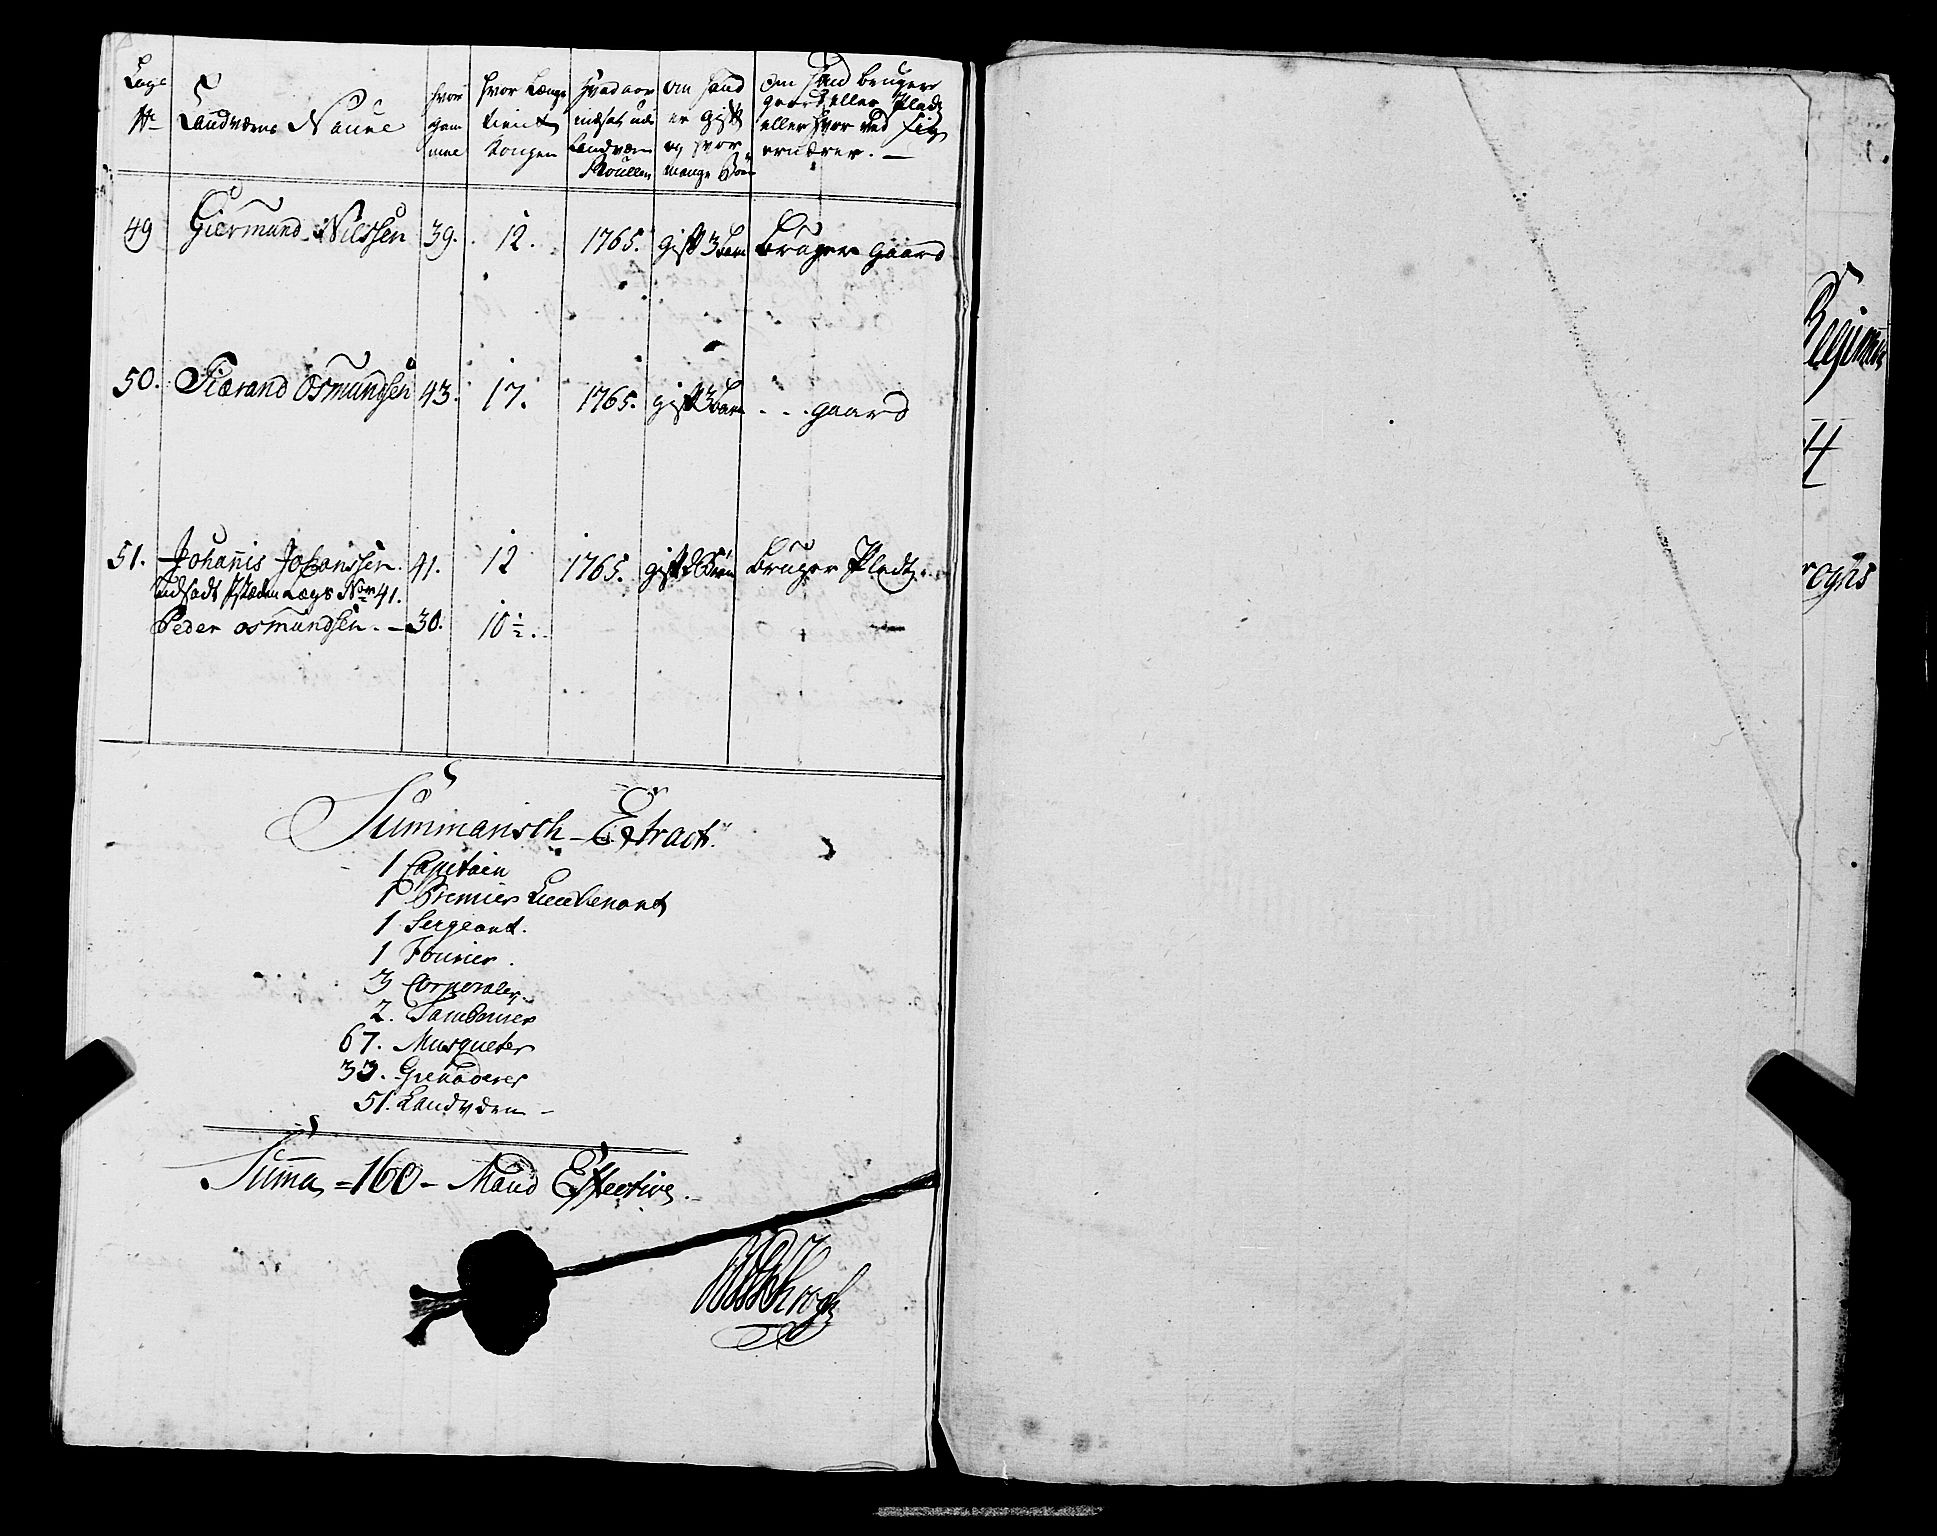 Lægs No | Landværns Naune | hvor gam mel | hvor Længe tient Kongen | Hvad aar indsat udi Landværn Roullen | Om hand er gift og hvor mange Børn | Om Hand bruger gaard eller Pladz eller hvor ved sig ernærer. —
49 Giermund Nilssen 39. 12. 1765. gift 3 barn Bruger gaard
50. Siærand Osmundsen 43. 17. 1765. gift 3 barn . . . gaard
51. Johannis Johanssen. 41. 12 1765. gift 2 Børn Bruger Pladz
udsadt Lægs No 41.
Peder osmundsen. — 30. 10½.
Summarisch — Extract.
1 Capitain
1 Premier Lieutenant
1 Sergeant.
1 Fourier.
3 Corporaler
2. Tambourer
67. Musqueter
33. Grenaderer
51. Landværn —
Summa = 160 — Mand Effective.
Regiment
roghs